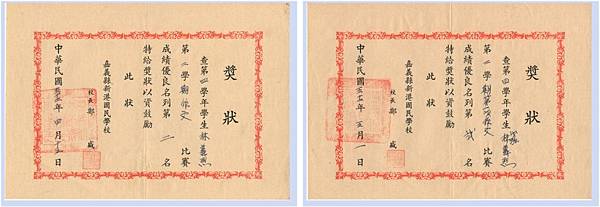 獎狀
查第四學年學生林義烈
第二學期作文比賽
成績優良名列第二名
特給獎狀以資鼓勵
此狀
嘉義縣新港國民學校
校長鄭
中華民國五十五年四月十五日
獎狀
查第四學年學生林義烈
第二學期第一次作文比賽
成績優良名列第貳名
特給獎狀以資鼓勵
此狀
嘉義縣新港國民學校
校長鄭
中華民國五十五年五月一日